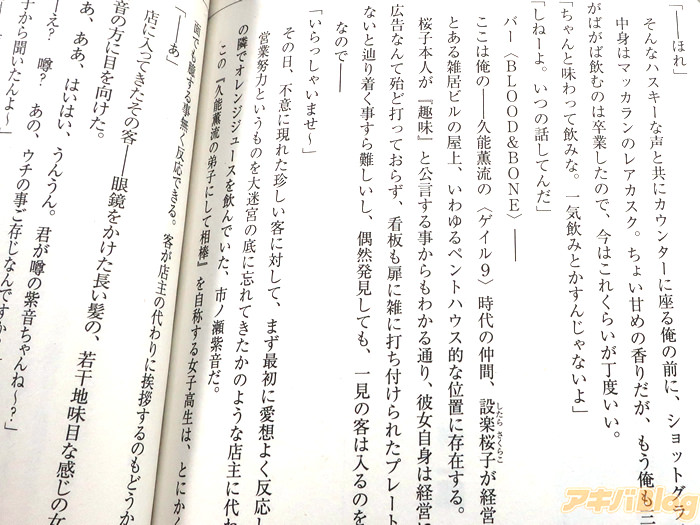 「――ほれ」
そんなハスキーな声と共にカウンターに座る俺の前に、ショットグラ
中身はマッカランのレアカスク。ちょい甘めの香りだが、もう俺も三
がばがば飲むのは卒業したので、今はこれくらいが丁度いい。
「ちゃんと味わって飲みな。一気飲みとかすんじゃないよ」
「しねーよ。いつの話してんだ」
バー〈BLOOD&BONE〉――
ここは俺の――久能薫流の〈ゲイル9〉時代の仲間、設楽桜子が経営
したら さくらこ
とある雑居ビルの屋上、いわゆるペントハウス的な位置に存在する。
桜子本人が『趣味』と公言する事からもわかる通り、彼女自身は経営に
広告なんて殆ど打っておらず、看板も扉に雑に打ち付けられたプレート
ないと辿り着く事すら難しいし、偶然発見しても、一見の客は入るのを
なので――
「いらっしゃいませ~」
その日、不意に現れた珍しい客に対して、まず最初に愛想よく反応し
営業努力というものを大迷宮の底に忘れてきたかのような店主に代わ
の隣でオレンジジュースを飲んでいた、市ノ瀬紫音だ。
この『久能薫流の弟子にして相棒』を自称する女子高生は、とにかく
面でも臆する事無く反応できる。客が店主の代わりに挨拶するのもどうか
「――あ」
店に入ってきたその客――眼鏡をかけた長い髪の、若干地味目な感じの女
音の方に目を向けた。
ああ、はいはい、うんうん。君が噂の紫音ちゃんね~?」
え? 噂? あの、ウチの事ご存じなんですか
子から聞いたんよ~」
アキバBlog